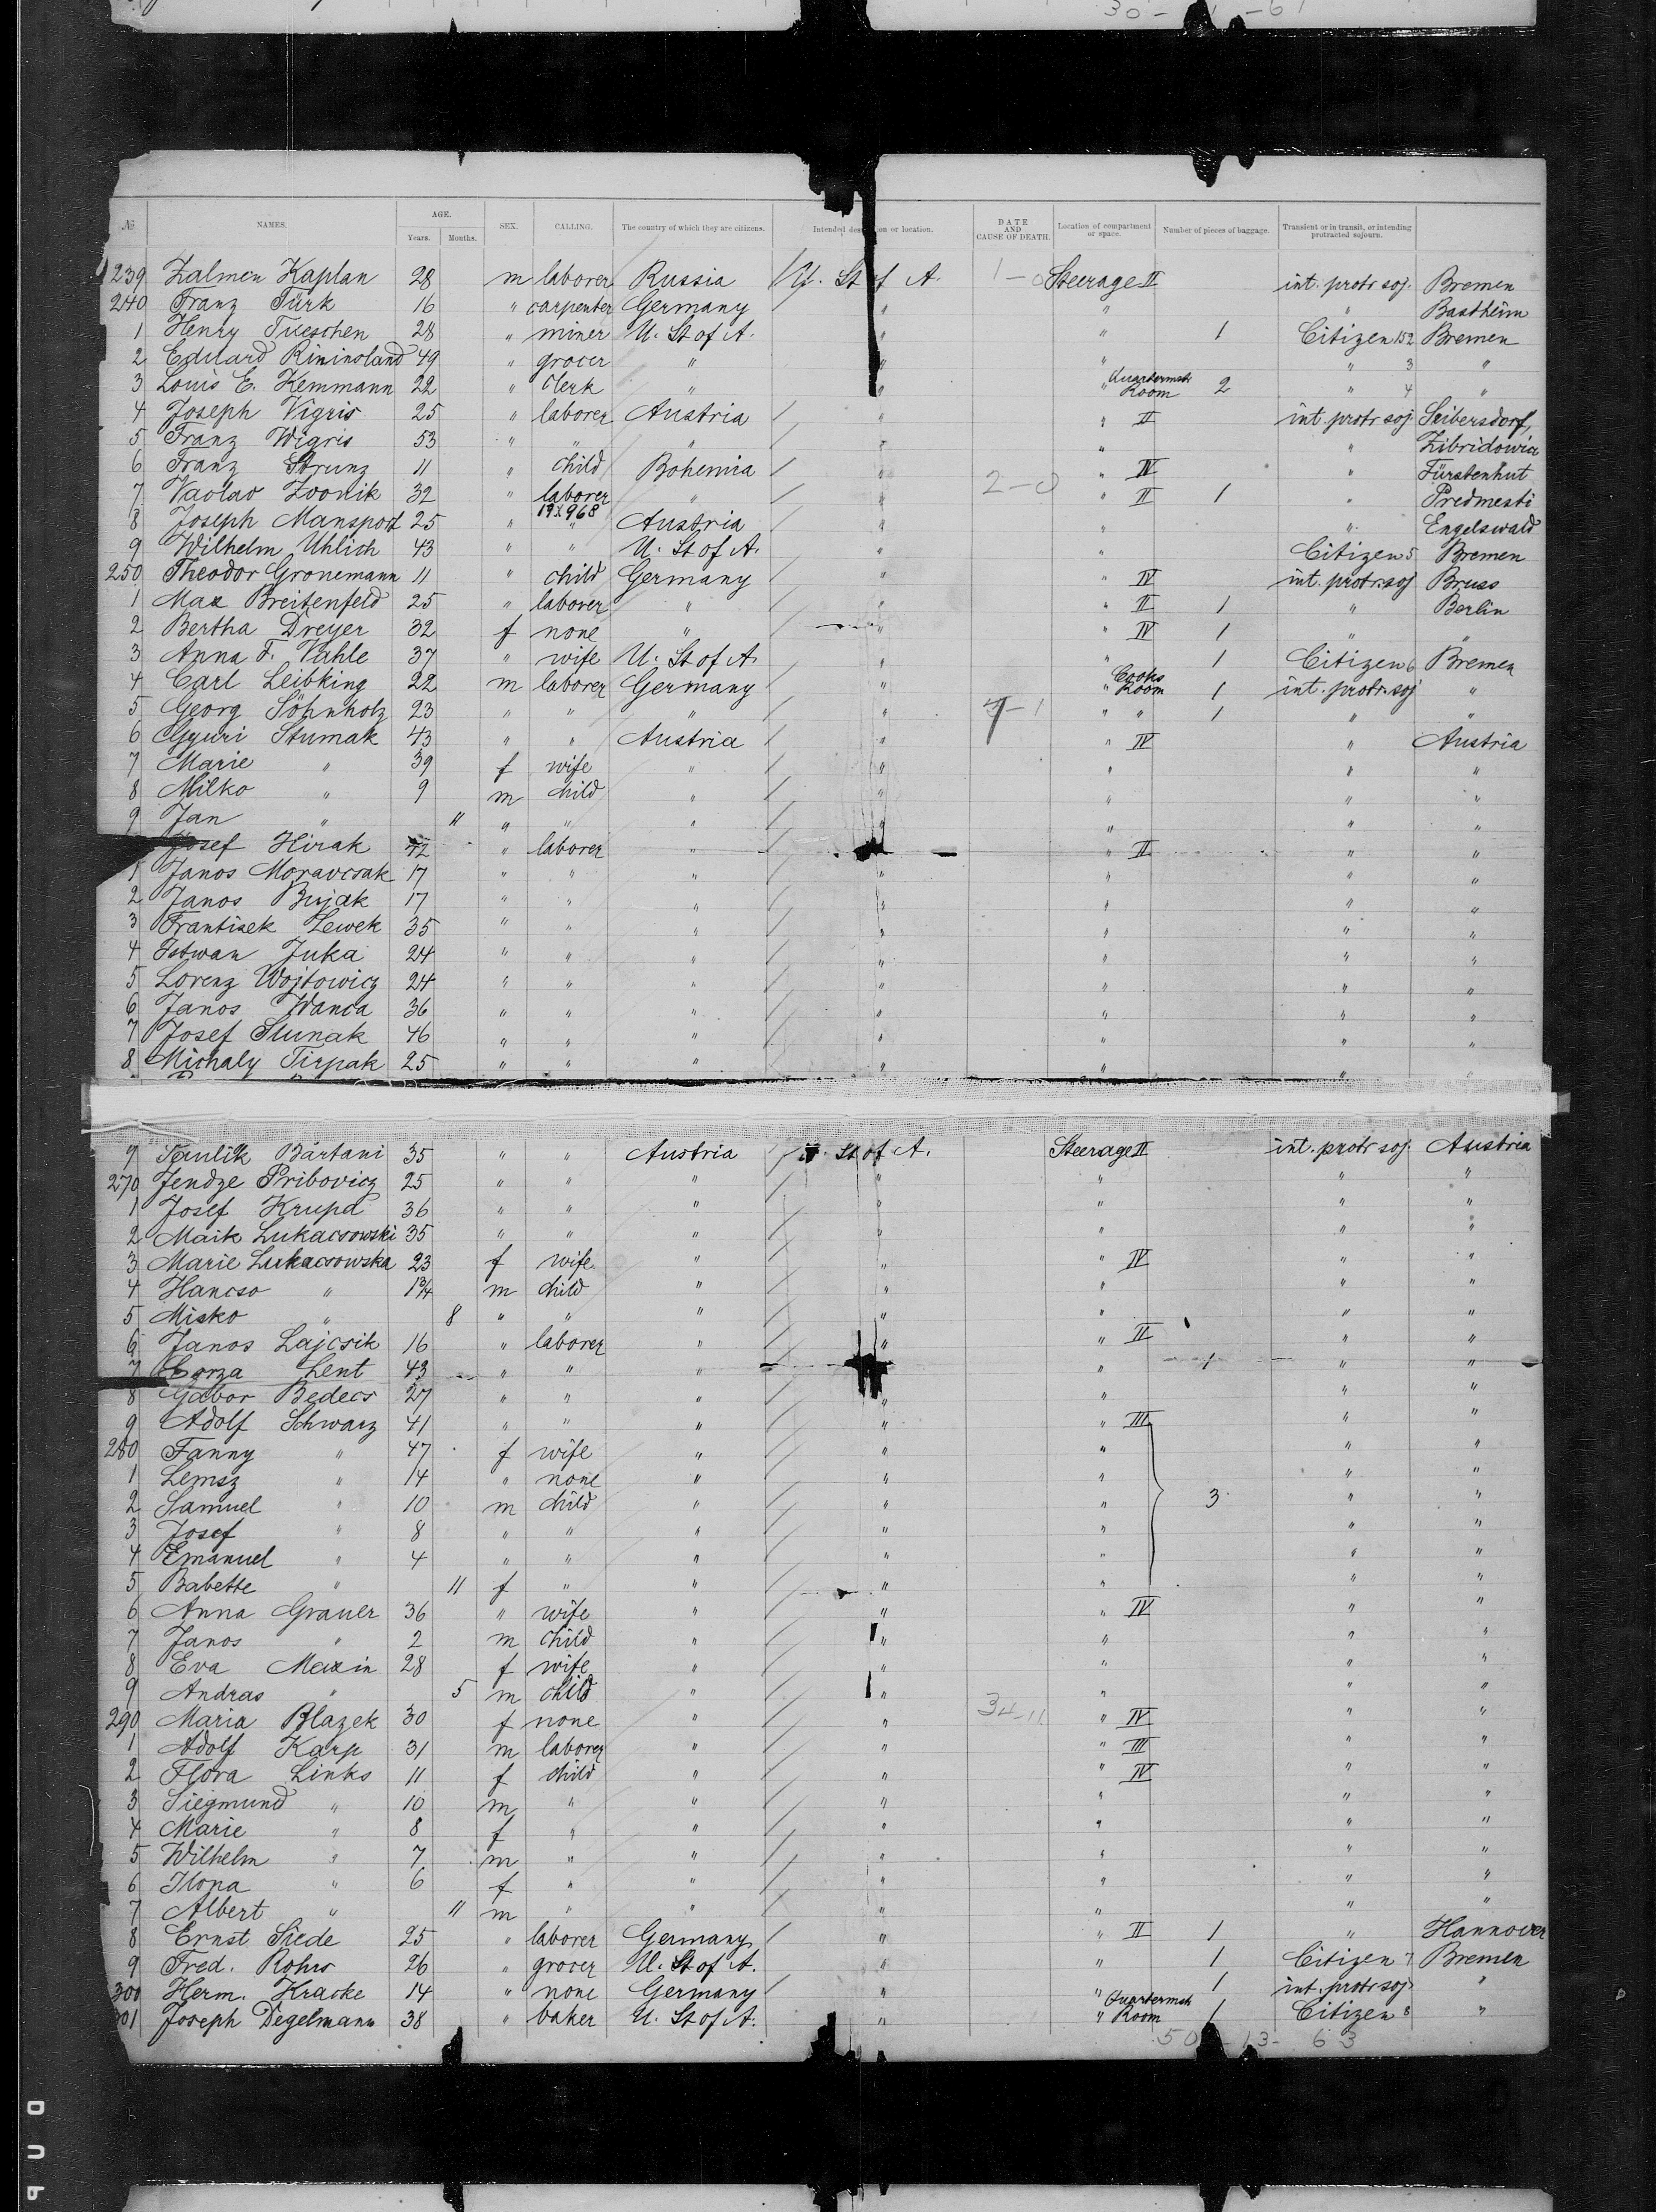 30- -61
№ NAMES. AGE. Years. Months. SEX. CALLING. The country of which they are citizens. Intended des on or location. DATE AND CAUSE OF DEATH. Location of compartment or space. Number of pieces of baggage. Transient or in transit, or intending protracted sojourn.
1239 Zalmen Kaplan 28 m laborer Russia U. St of A. 1-0 Steerage II int. protr soj. Bremen
240 Franz Türk 16 " carpenter Germany " " " Bastheim
1 Henry Tueschen 28 " miner U. St of A. " " 1 Citizen 152 Bremen
2 Eduard Rininsland 49 " grocer " " " " 3 "
3 Louis E. Kemmann 22 " clerk " " " Quartermstr Room 2 " 4 "
4 Joseph Vigris 25 " laborer Austria " " II int. protr soj Seibersdorf
5 Franz Wigris 53 " " " " " " Zibridowia
6 Franz Strunz 11 " child Bohemia " " IV " Fürstenhut
7 Vaolav Zoonik 32 " laborer " " 2-0 " II 1 " Predmesti
8 Joseph Manspost 25 " 19x968 " Austria " " " Engelswald
9 Wilhelm Uhlich 43 " " U. St of A. " " Citizen 5 Bremen
250 Theodor Gronemann 11 " child Germany " " IV int. protr. soj Bruss
1 Max Breitenfeld 25 " laborer " " " II 1 " Berlin
2 Bertha Dreyer 32 f none " " " IV 1 " "
3 Anna F. Vahle 37 " wife U. St of A. " " 1 Citizen 6 Bremen
4 Carl Leibking 22 m laborer Germany " " Cooks Room 1 int. protr. soj "
5 Georg Söhnholz 23 " " " " 7-1 " " 1 " "
6 Gyuri Stumak 43 " " Austria " " IV " Austria
7 Marie " 39 f wife " " " " "
8 Milko " 9 m child " " " " "
9 Jan " 11 " " " " " " "
Josef Hirak 42 " laborer " " " II " "
1 Janos Moravcsak 17 " " " " " " "
2 Janos Bujak 17 " " " " " " "
3 Frantisek Lewek 35 " " " " " " "
4 Istwan Juka 24 " " " " " " "
5 Lorenz Wojtowicz 24 " " " " " " "
6 Janos Wanca 36 " " " " " " "
7 Josef Stunak 46 " " " " " " "
8 Michaly Tirpak 25 " " " " " " "
9 Paulik Bártani 35 " " Austria U. St of A. Steerage II int. protr soj. Austria
270 Jendze Pribovicz 25 " " " " " " "
1 Josef Krupa 36 " " " " " " "
2 Maik Lukacsowski 35 " " " " " " "
3 Marie Lukacsowska 23 f wife " " " IV " "
4 Hancso " 1¾ m child " " " " "
5 Misko " 8 " " " " " " "
6 Janos Lajcsik 16 " laborer " " " II " "
7 Lent 43 " " " " " 1 " "
8 Gabor Bedecs 27 " " " " " " "
9 Adolf Schwarz 41 " " " " " III " "
280 Fanny " 47 f wife " " " " "
1 Lemsz " 14 " none " " " " "
2 Samuel " 10 m child " " " 3 " "
3 Josef " 8 " " " " " " "
4 Emanuel " 4 " " " " " " "
5 Babette " 11 f " " " " " "
6 Anna Grauer 36 " wife " " " IV " "
7 Janos " 2 m child " " " " "
8 Eva Maxin 28 f wife " " " " "
9 Andras " 5 m child " " " " "
290 Maria Blazek 30 f none " " 34-11 " IV " "
1 Adolf Karp 31 m laborer " " " III " "
2 Flora Links 11 f child " " " IV " "
3 Siegmund " 10 m " " " " " "
4 Marie " 8 f " " " " " "
5 Wilhelm " 7 m " " " " " "
6 Ilona " 6 f " " " " " "
7 Albert " 11 m " " " " " "
8 Ernst Siede 25 " laborer Germany " " II 1 " Hannover
9 Fred. Rohrs 26 " grocer U. St of A. " " 1 Citizen 7 Bremen
300 Herm. Kracke 14 " none Germany " " 1 int. protr soj "
301 Joseph Degelmann 38 " baker U. St of A. " " Quartermstr Room 1 Citizen 8 "
50-13-63